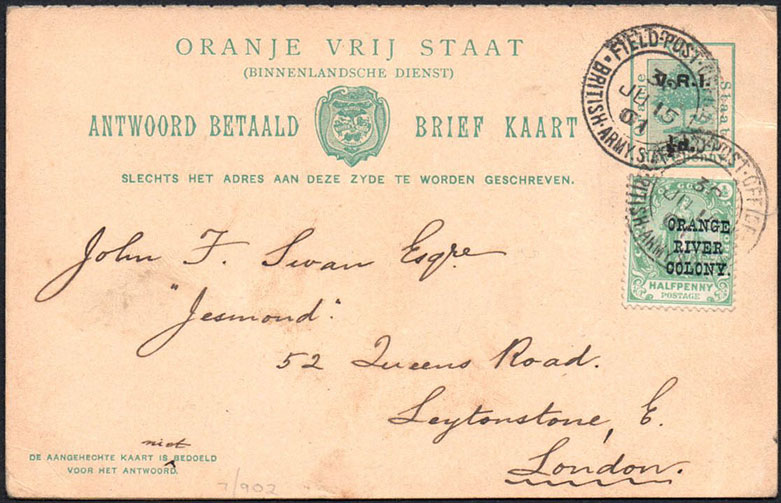 ORANJE VRIJ STAAT
(BINNENLANDSCHE DIENST)
ANTWOORD BETAALD BRIEF KAART
SLECHTS HET ADRES AAN DEZE ZYDE TE WORDEN GESCHREVEN.
V.R.I.
FIELD-POST-OFFICE
BRITISH-ARMY
JU 15
01
FIELD-POST-OFFICE
BRITISH-ARMY
ORANGE
RIVER
COLONY.
HALFPENNY
POSTAGE
John F. Swan Esqre.
"Jesmond".
52 Queens Road.
Leytonstone, E.
London.
niet
DE AANGEHECHTE KAART IS BEDOELD
VOOR HET ANTWOORD.
7/902